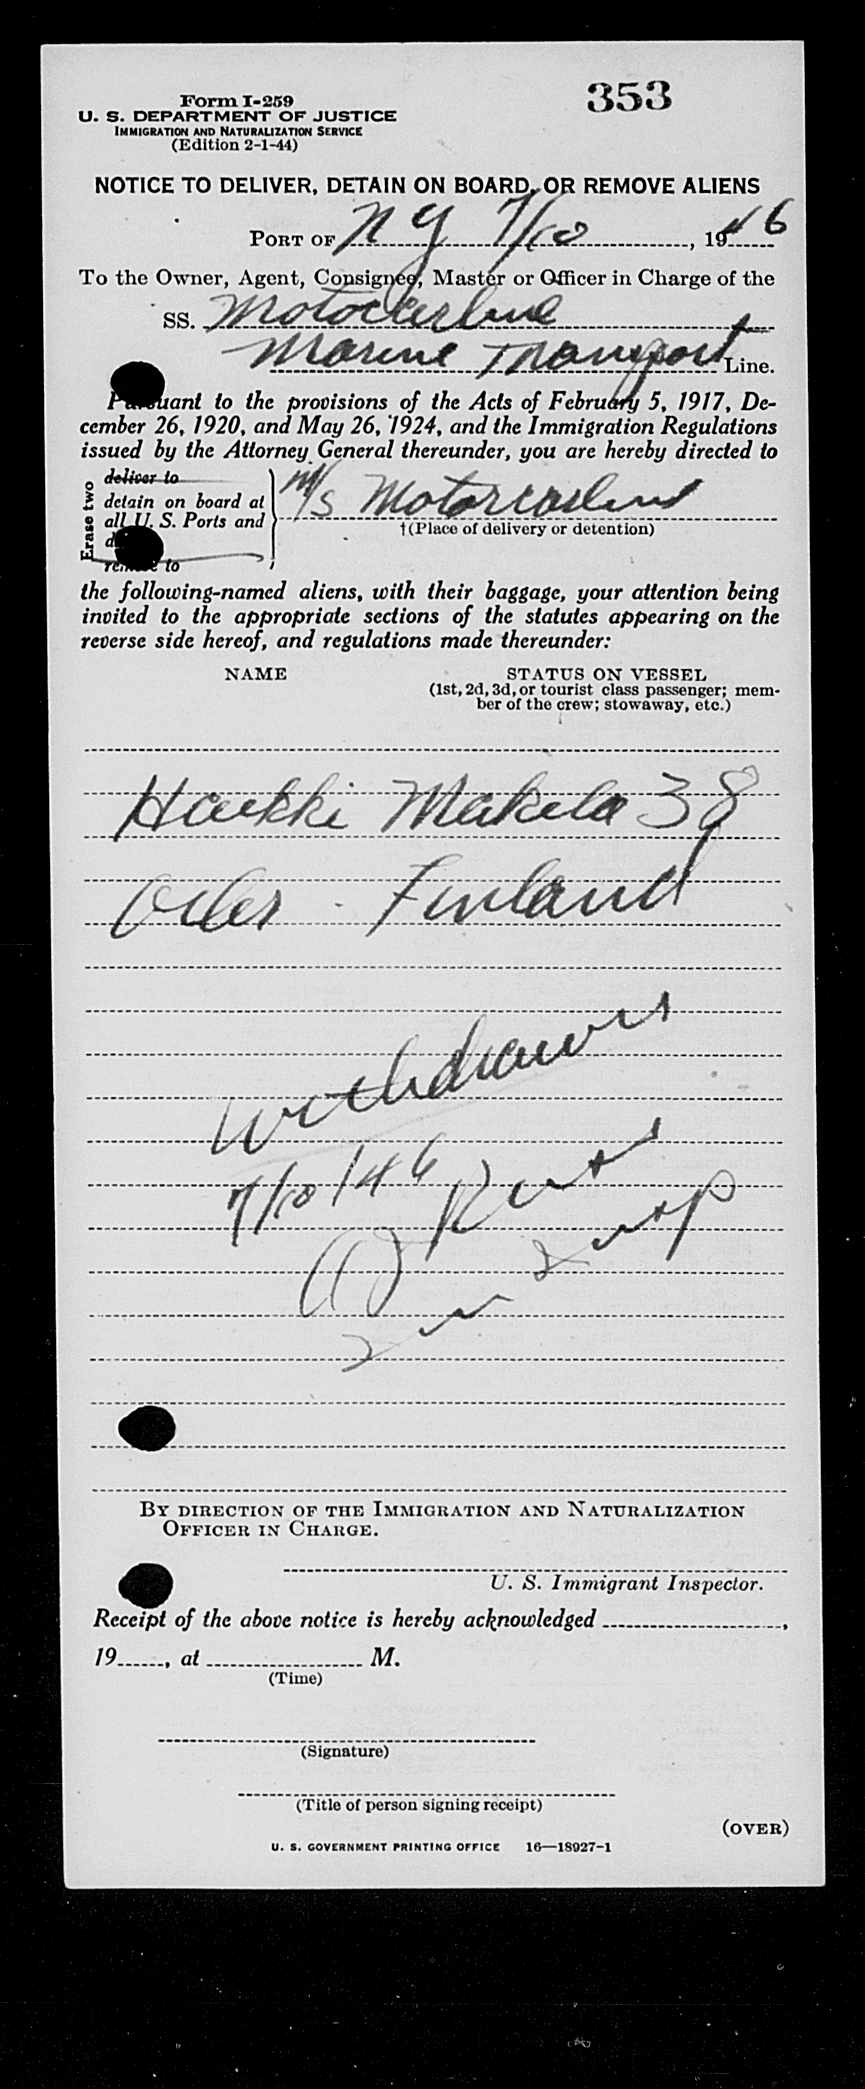 Form I-259
353
U. S. DEPARTMENT OF JUSTICE
IMMIGRATION AND NATURALIZATION SERVICE
(Edition 2-1-44)
NOTICE TO DELIVER, DETAIN ON BOARD, OR REMOVE ALIENS
PORT OF N Y 7/10, 1946
To the Owner, Agent, Consignee, Master or Officer in Charge of the
SS.
Marine Transport Line.
Pursuant to the provisions of the Acts of February 5, 1917, De-
cember 26, 1920, and May 26, 1924, and the Immigration Regulations
issued by the Attorney General thereunder, you are hereby directed to
Erase two
deliver to
detain on board at
all U. S. Ports and
remove to
M/S
†(Place of delivery or detention)
the following-named aliens, with their baggage, your attention being
invited to the appropriate sections of the statutes appearing on the
reverse side hereof, and regulations made thereunder:
NAME
STATUS ON VESSEL
(1st, 2d, 3d, or tourist class passenger; mem-
ber of the crew; stowaway, etc.)
Makela 38
Oiler - Finland
Withdrawn
7/10/46
BY DIRECTION OF THE IMMIGRATION AND NATURALIZATION
OFFICER IN CHARGE.
U. S. Immigrant Inspector.
Receipt of the above notice is hereby acknowledged ,
19 , at M.
(Time)
(Signature)
(Title of person signing receipt)
(OVER)
U. S. GOVERNMENT PRINTING OFFICE 16—18927-1